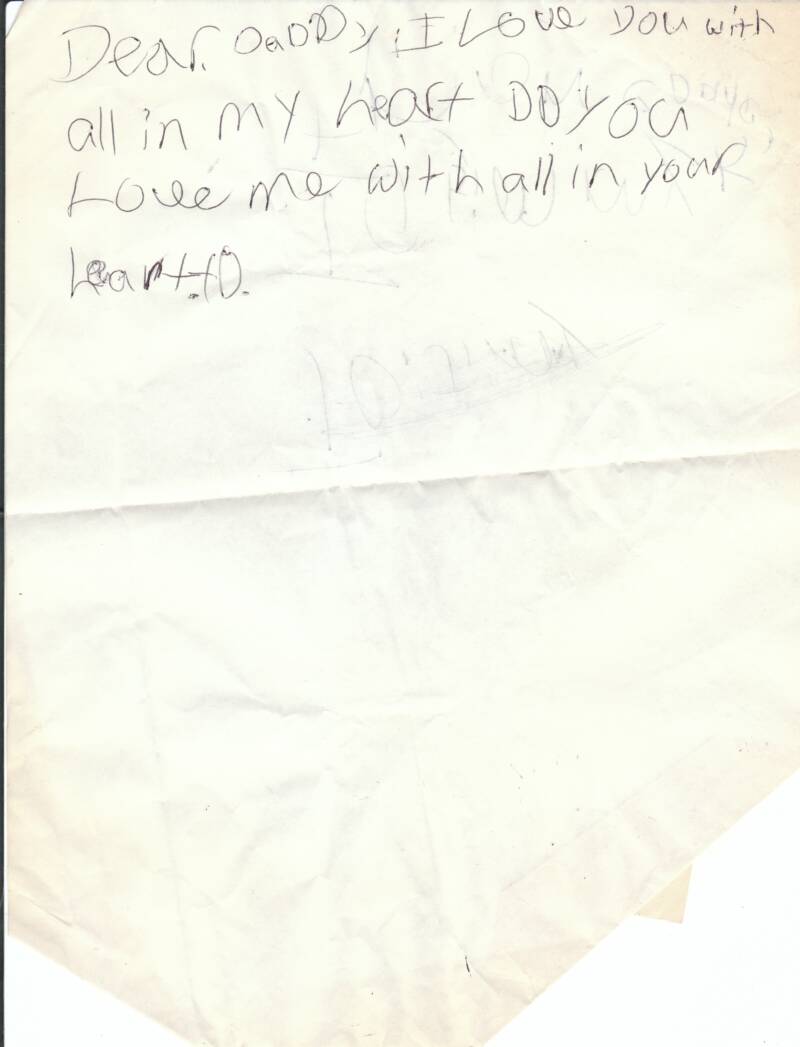 Dear. DaDDy. I Love you with
all in my heart DO you
Love me with all in your
heart.to.